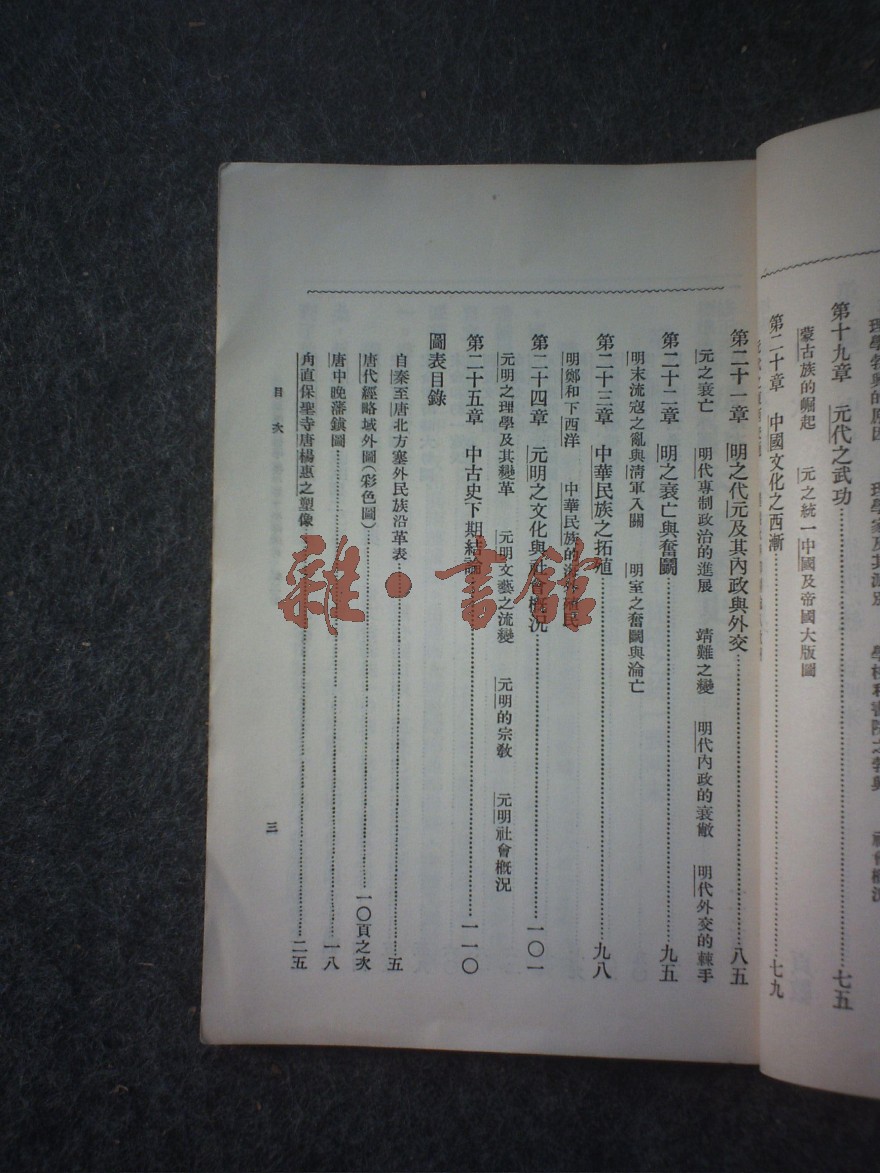 第十九章 元代之武功 七五
蒙古族的崛起 元之統一中國及帝國大版圖
第二十章 中國文化之西漸 七九
第二十一章 明之代元及其內政與外交 八五
元之衰亡 明代專制政治的進展 靖難之變 明代內政的衰敝 明代外交的棘手
第二十二章 明之衰亡與奮鬭 九五
明末流寇之亂與淸軍入關 明室之奮鬭與淪亡
第二十三章 中華民族之拓殖 九八
明鄭和下西洋 中華民族的海外殖民
第二十四章 元明之文化與社會概況 一〇一
元明之理學及其變革 元明文藝之流變 元明的宗敎 元明社會概況
第二十五章 中古史下期結論 一一〇
圖表目錄
自秦至唐北方塞外民族沿革表 五
唐代經略域外圖(彩色圖) 一〇頁之次
唐中晚藩鎮圖 一八
甪直保聖寺唐楊惠之塑像 二五
目次
三
雜·書館